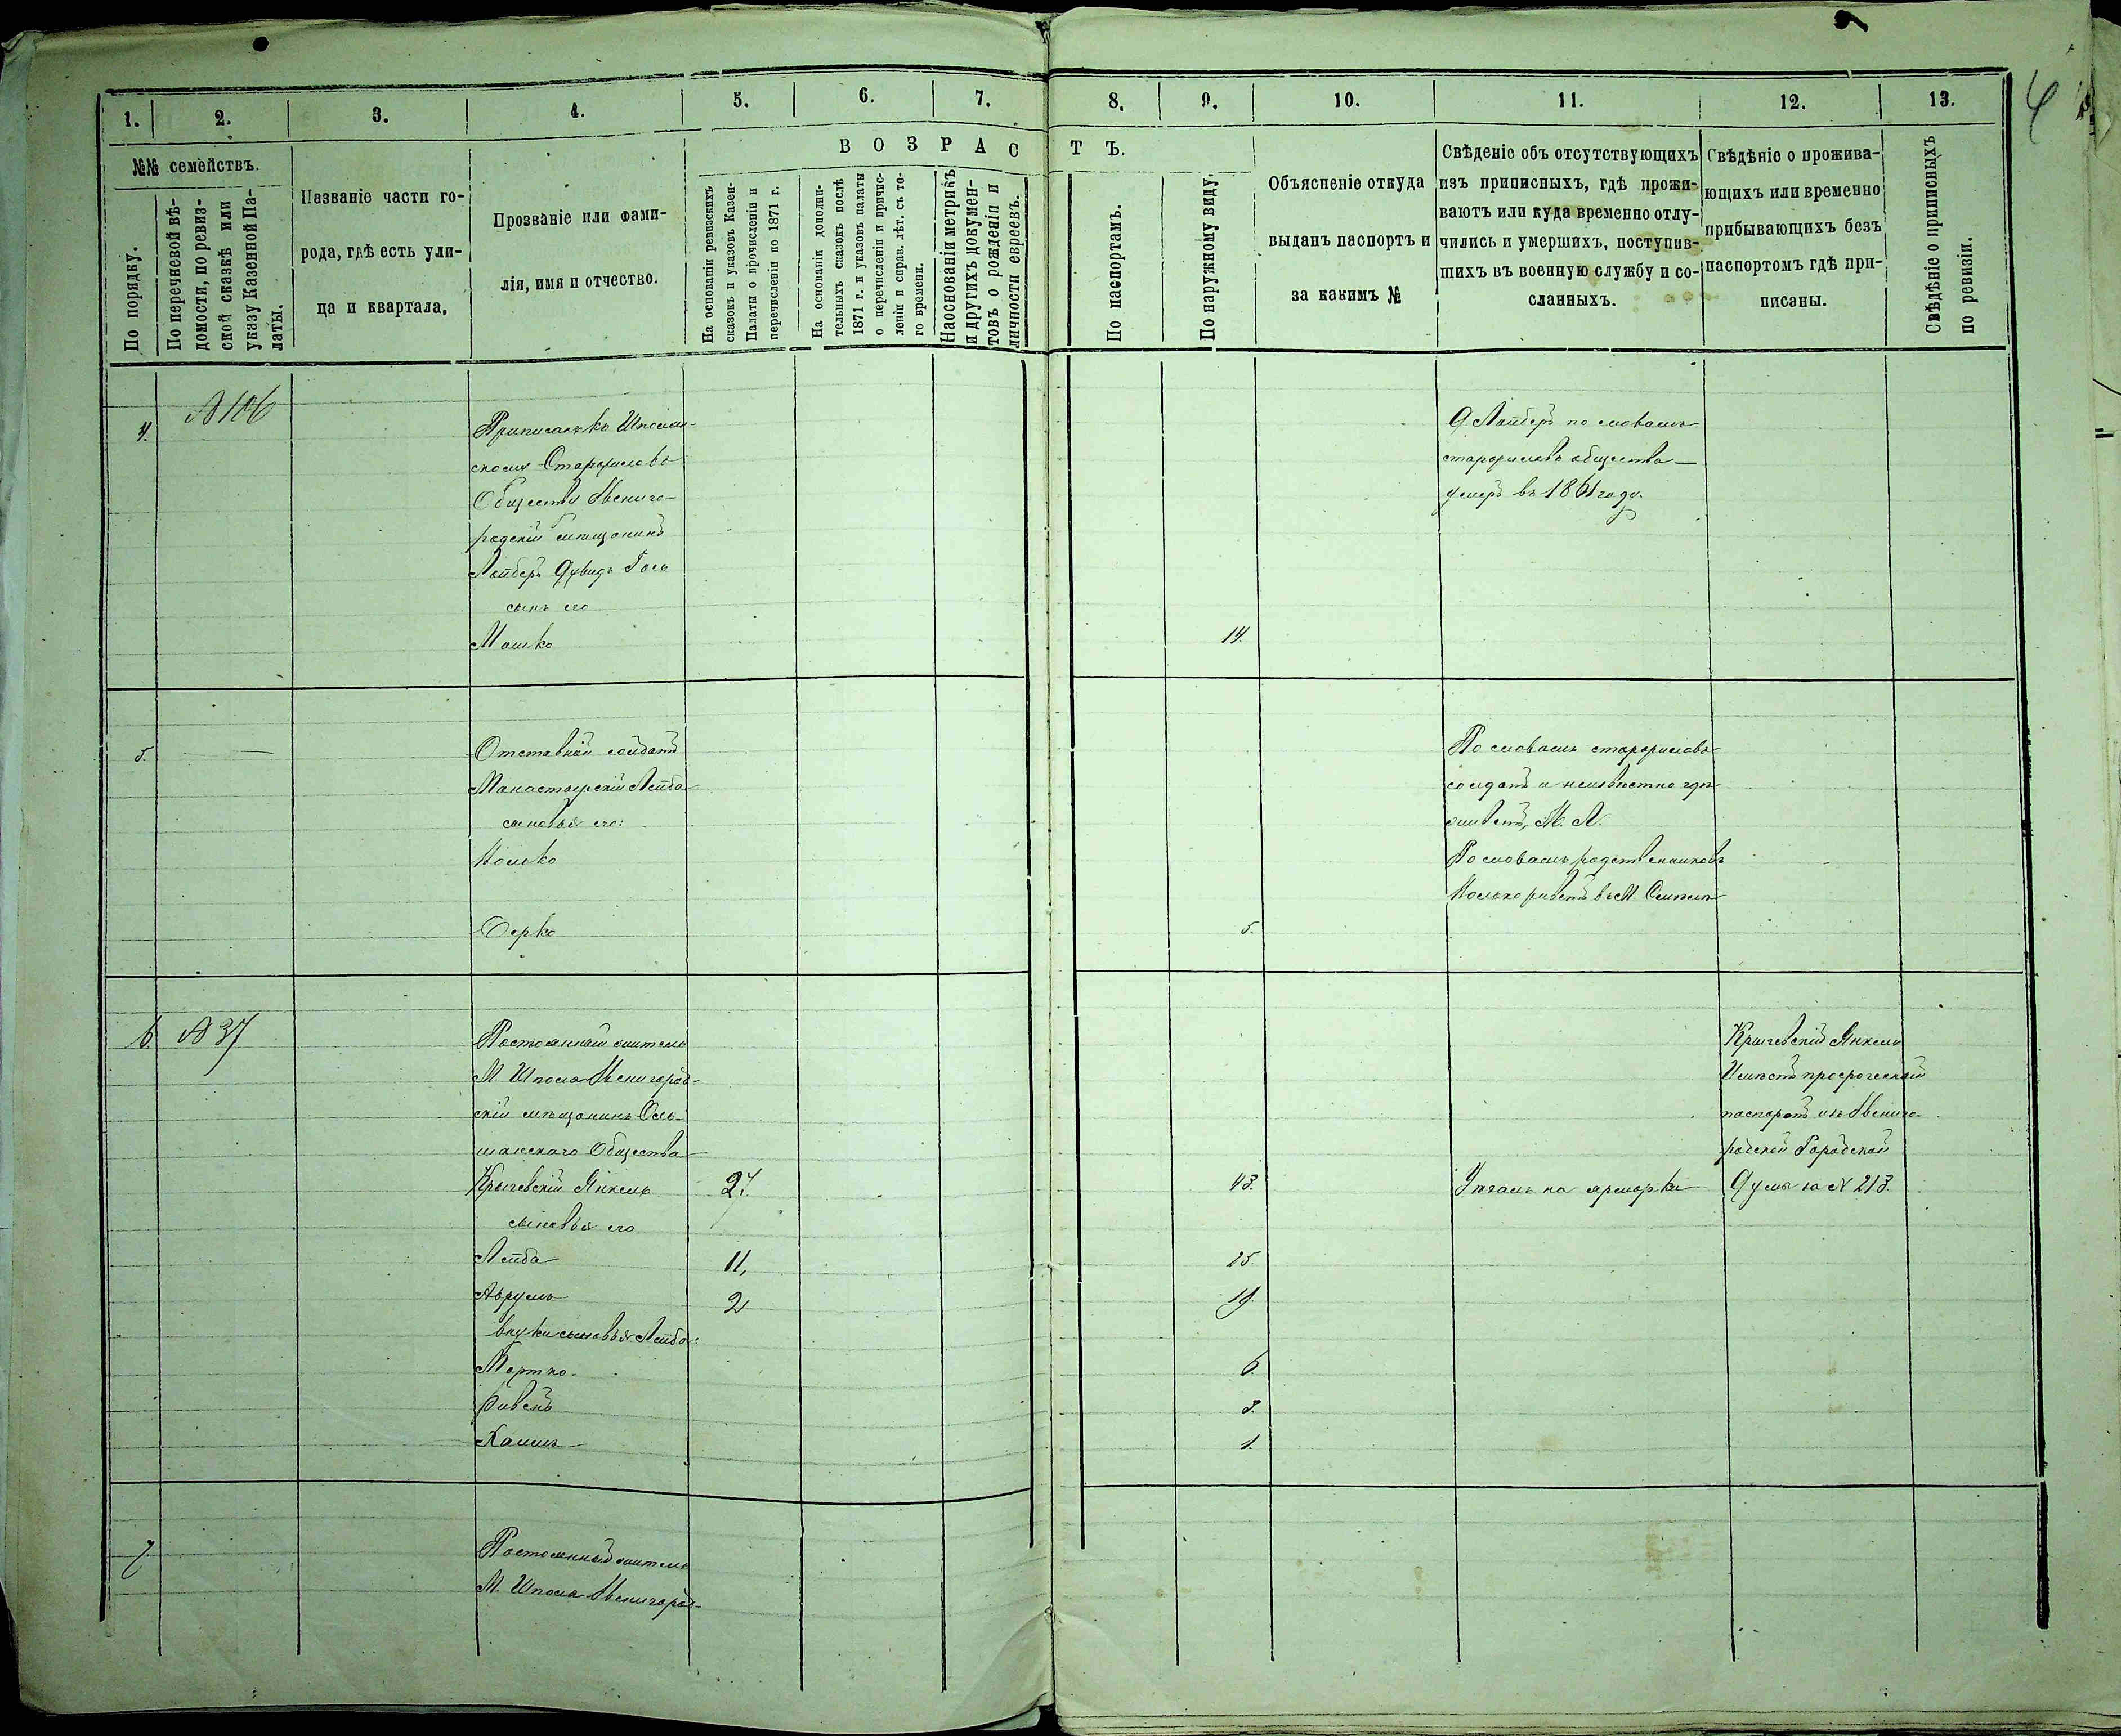 4
1.
2.
3.
4.
5.
6.
7.
8.
9.
10.
11.
12.
13.
№№ семействъ.
По порядку.
По перечневой вѣ-
домости, по ревиз-
ской сказкѣ или
указу Казенной Па-
латы.
Названіе части го-
рода, гдѣ есть ули-
ца и квартала.
Прозваніе или фами-
лія, имя и отчество.
ВОЗРАСТЪ.
На основаніи ревизскихъ
сказокъ и указовъ Казен-
Палаты о прочисленіи и
перечисленіи по 1871 г.
На основаніи дополни-
тельныхъ сказокъ послѣ
1871 г. и указовъ палаты
о перечисленіи и причис-
леніи и справ. лѣт. съ то-
го времени.
На основаніи метрикъ
и другихъ докумен-
товъ о рожденіи и
личности евреевъ.
По паспортамъ.
По наружному виду.
Объясненіе откуда
выданъ паспортъ и
за какимъ №
Свѣденіе объ отсутствующихъ
изъ приписныхъ, гдѣ прожи-
ваютъ или куда временно отлу-
чились и умершихъ, поступив-
шихъ въ военную службу и со-
сланныхъ.
Свѣдѣніе о прожива-
ющихъ или временно
прибывающихъ безъ
паспортомъ гдѣ при-
писаны.
Свѣдѣніе о приписныхъ
по ревизіи.
4.
№ 106
Приписанъ къ Шполян-
скому Старожиловъ
Обществу Звениго-
родскій мѣщанинъ
Лайберъ Дувидъ Гось
сынъ его
Мошко
14.
Д Лайберъ по словамъ
старожиловъ общества
умеръ въ 1861 году.
5.
—
Отставной солдатъ
Манастырскій Лейба
сыновья его:
Іосько
Берко
5.
По словамъ старожиловъ
солдатъ и неизвѣстно гдѣ
живетъ, М. Л.
По словамъ родственниковъ
Іосько живетъ въ М.
6.
№ 37
Постоянный житель
М. Шпола Звенигород-
скій мѣщанинъ Оль-
шанскаго Общества
Крычевскій Янкель
27.
43.
Уѣхалъ на ярмарки
сыновья его
Лейба
11,
25.
Аврумъ
2
19.
внуки сыновья Лейба:
Мортко
6.
Ривенъ
3.
Хаимъ
1.
Крычевскій Янкель
Имѣетъ просроченный
паспортъ изъ Звениго-
родской Городской
Думы за № 213.
7.
Постоянный житель
М. Шпола Звенигород-